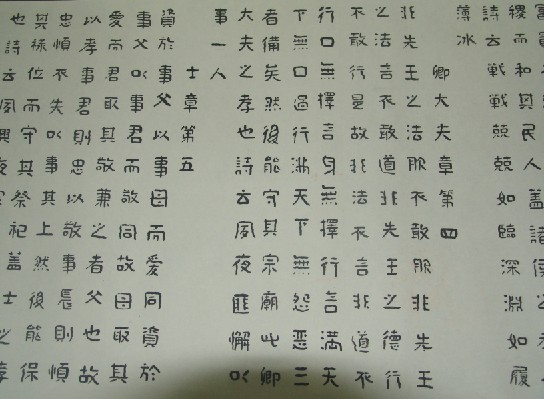 稷而和其民人蓋諸侯之
詩云戰戰兢兢如臨深淵如履
薄冰
卿大夫章第四
非先王之法服不敢服非先王
之法言不敢道非先王之德行
不敢行是故非法不言非道不
行口無擇言身無擇行言滿天
下無口過行滿天下無怨惡三
者備矣然後能守其宗廟此卿
大夫之孝也詩云夙夜匪懈以
事一人
士章第五
資於事父以事母而愛同資於
事父以事君而敬同故母取其
愛而君取其敬兼之者父也故
以孝事君則忠以敬事長則順
忠順不失以事其上然後能保
其祿位而守其祭祀蓋士之孝
也詩云夙興夜